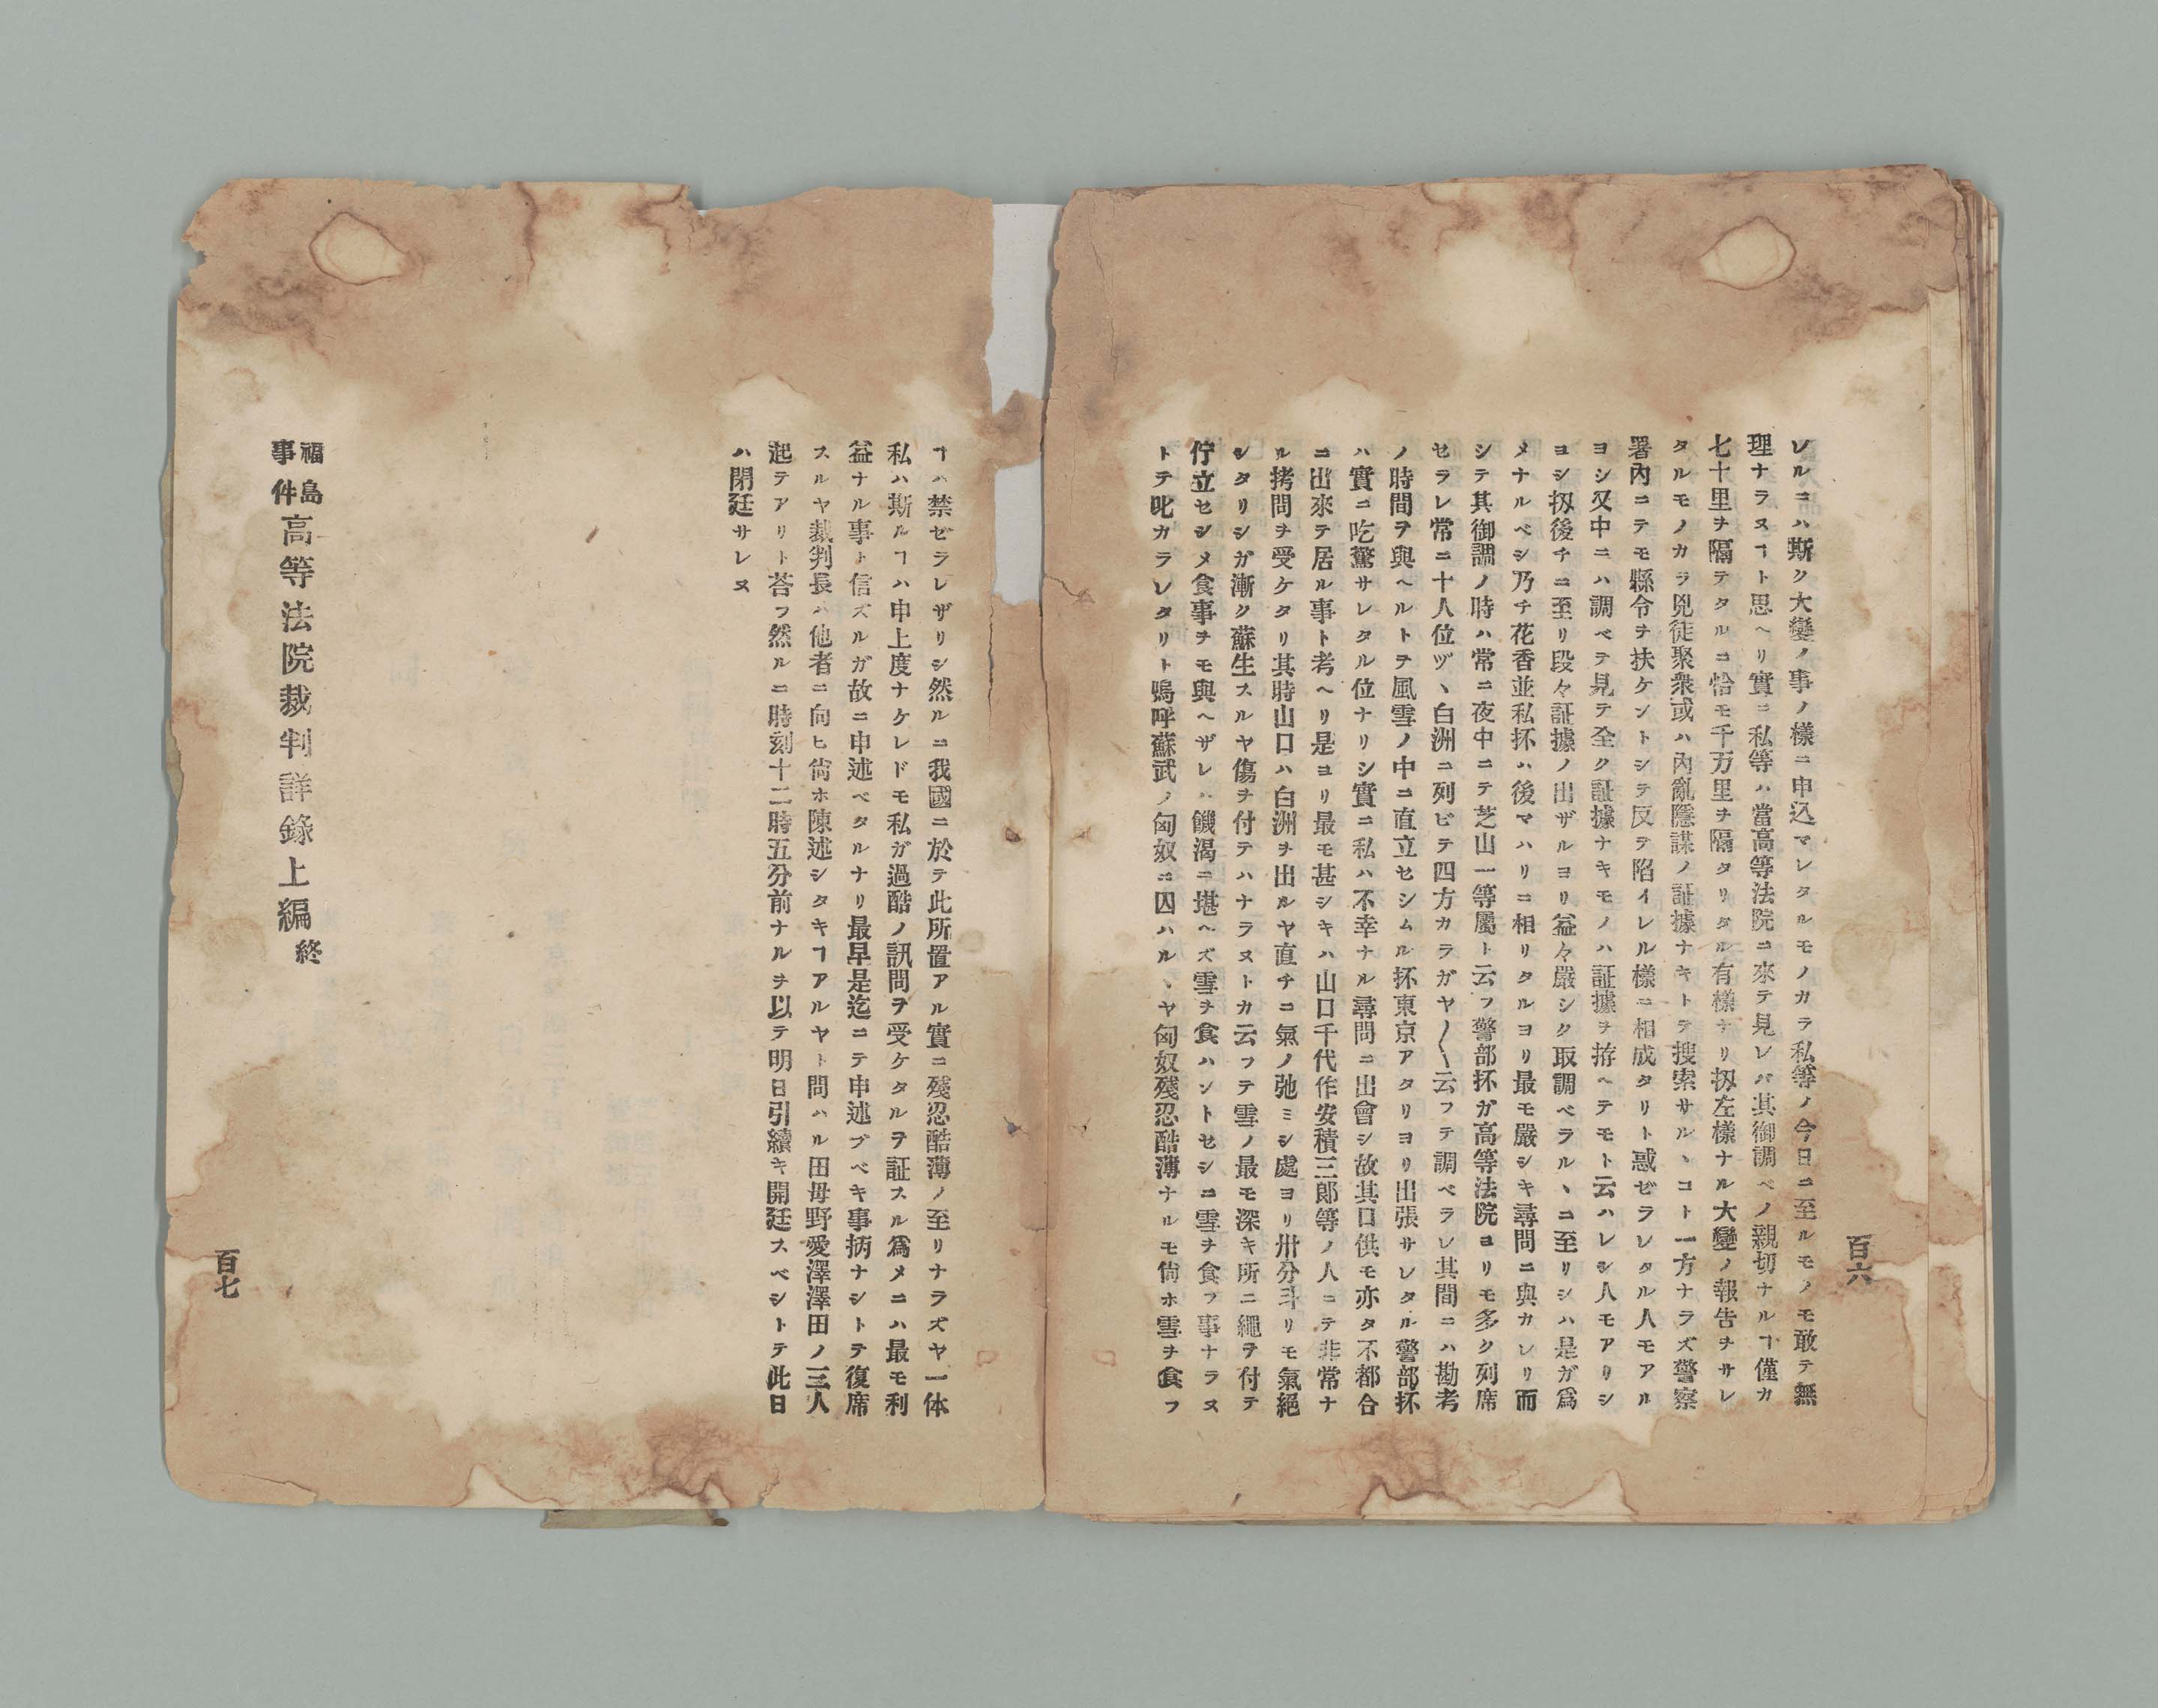 百六
レルニハ斯ク大變ノ事ノ樣ニ申込マレタルモノカラ私等ノ今日ニ至ルモノモ敢テ無
理ナラヌヿト思ヘリ實ニ私等ハ當高等法院ニ來テ見レバ其御調ベノ親切ナルヿ僅カ
七十里ヲ隔テタルニ恰モ千万里ヲ隔タリタル有樣ナリ扨左樣ナル大變ノ報告ヲサレ
タルモノカラ兇徒聚衆或ハ內亂隱謀ノ証據ナキトテ搜索サルヽコト一方ナラズ警察
署內ニテモ縣令ヲ扶ケントシテ反テ陷イレル樣ニ相成タリト惑ゼラレタル人モアル
ヨシ又中ニハ調ベテ見テ全ク証據ナキモノハ証據ヲ拵ヘテモト云ハレシ人モアリシ
ヨシ扨後チニ至リ段々証據ノ出ザルヨリ益々嚴シク取調ベラルヽニ至リシハ是ガ爲
メナルベシ乃チ花香並私抔ハ後マハリニ相リタルヨリ最モ嚴シキ尋問ニ與カレリ而
シテ其御調ノ時ハ常ニ夜中ニテ芝山一等屬ト云フ警部抔ガ高等法院ヨリモ多ク列席
セラレ常ニ十人位ヅヽ白洲ニ列ビテ四方カラガヤ〳〵云フテ調ベラレ其間ニハ勘考
ノ時間ヲ與ヘルトテ風雪ノ中ニ直立セシムル抔東京アタリヨリ出張サレタル警部抔
ハ實ニ吃驚サレタル位ナリシ實ニ私ハ不幸ナル尋問ニ出會シ故其口供モ亦タ不都合
ニ出來テ居ル事ト考ヘリ是ヨリ最モ甚シキハ山口千代作安積三郎等ノ人ニテ非常ナ
ル拷問ヲ受ケタリ其時山口ハ白洲ヲ出ルヤ直チニ氣ノ弛ミシ處ヨリ卅分斗リモ氣絕
シタリシガ漸ク蘇生スルヤ傷ヲ付テハナラヌトカ云フテ雪ノ最モ深キ所ニ繩ヲ付テ
佇立セシメ食事ヲモ與ヘザレハ饑渴ニ堪ヘズ雪ヲ食ハントセシニ雪ヲ食フ事ナラヌ
トテ叱カラレタリト嗚呼蘇武ノ匈奴ニ囚ハルヽヤ匈奴殘忍酷薄ナルモ尙ホ雪ヲ食フ
ヿハ禁ゼラレザリシ然ルニ我國ニ於テ此所置アル實ニ殘忍酷薄ノ至リナラズヤ一体
私ハ斯ルヿハ申上度ナケレドモ私ガ過酷ノ訊問ヲ受ケタルヲ証スル爲メニハ最モ利
益ナル事ト信ズルガ故ニ申述ベタルナリ最早是迄ニテ申述ブベキ事柄ナシトテ復席
スルヤ裁判長ハ他者ニ向ヒ尙ホ陳述シタキヿアルヤト問ハル田母野愛澤澤田ノ三人
起テアリト荅フ然ルニ時刻十二時五分前ナルヲ以テ明日引續キ開廷スベシトテ此日
ハ閉廷サレヌ
福島事件高等法院裁判詳錄上編終
百七